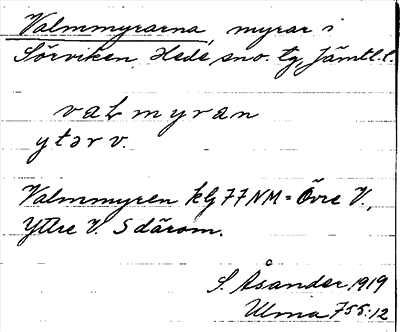 Valmmyrarna, myrar i
Sörviken, Hede sno. tg, Jämtl. l.
valmyran
ytər v.
Valmmyren klg 77 NM = Övre V.,
Yttre V. S därom.
S. Åsander 1919
Ulma 755:12